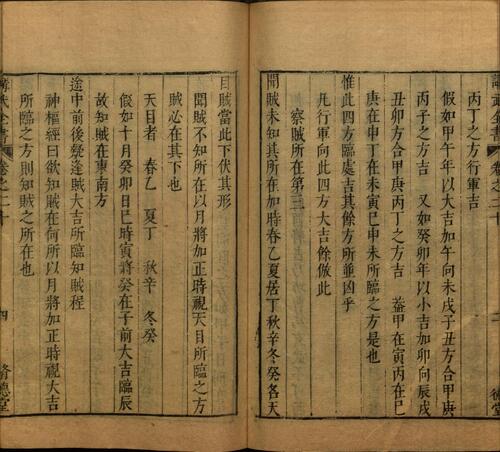 丙丁之方行軍吉
假如甲午年以大吉加午向未戌子丑方合甲庚
丙子之方吉 又如癸卯年以小吉加卯向辰戌
丑卯方合甲庚丙丁之方吉 葢甲在寅丙在巳
庚在申丁在未寅巳申未所臨之方是也
惟此四方臨處吉其餘方所並凶乎
凢行軍向此四方大吉餘倣此
察賊所在第三
聞賊未知其所在加時春乙夏丁秋辛冬癸各天
目賊當此下伏其形
聞賊不知所在以月將加正時視天目所臨之方
賊必在其下也
天目者 春乙 夏丁 秋辛 冬癸
假如十月癸卯日巳時寅將癸在子前大吉臨辰
故知賊在東南方
途中前後凳逢賊大吉所臨知賊程
神樞經曰欲知賊在何所以月將加正時視大吉
所臨之方則知賊之所在也
卷之二十
四
脊德堂